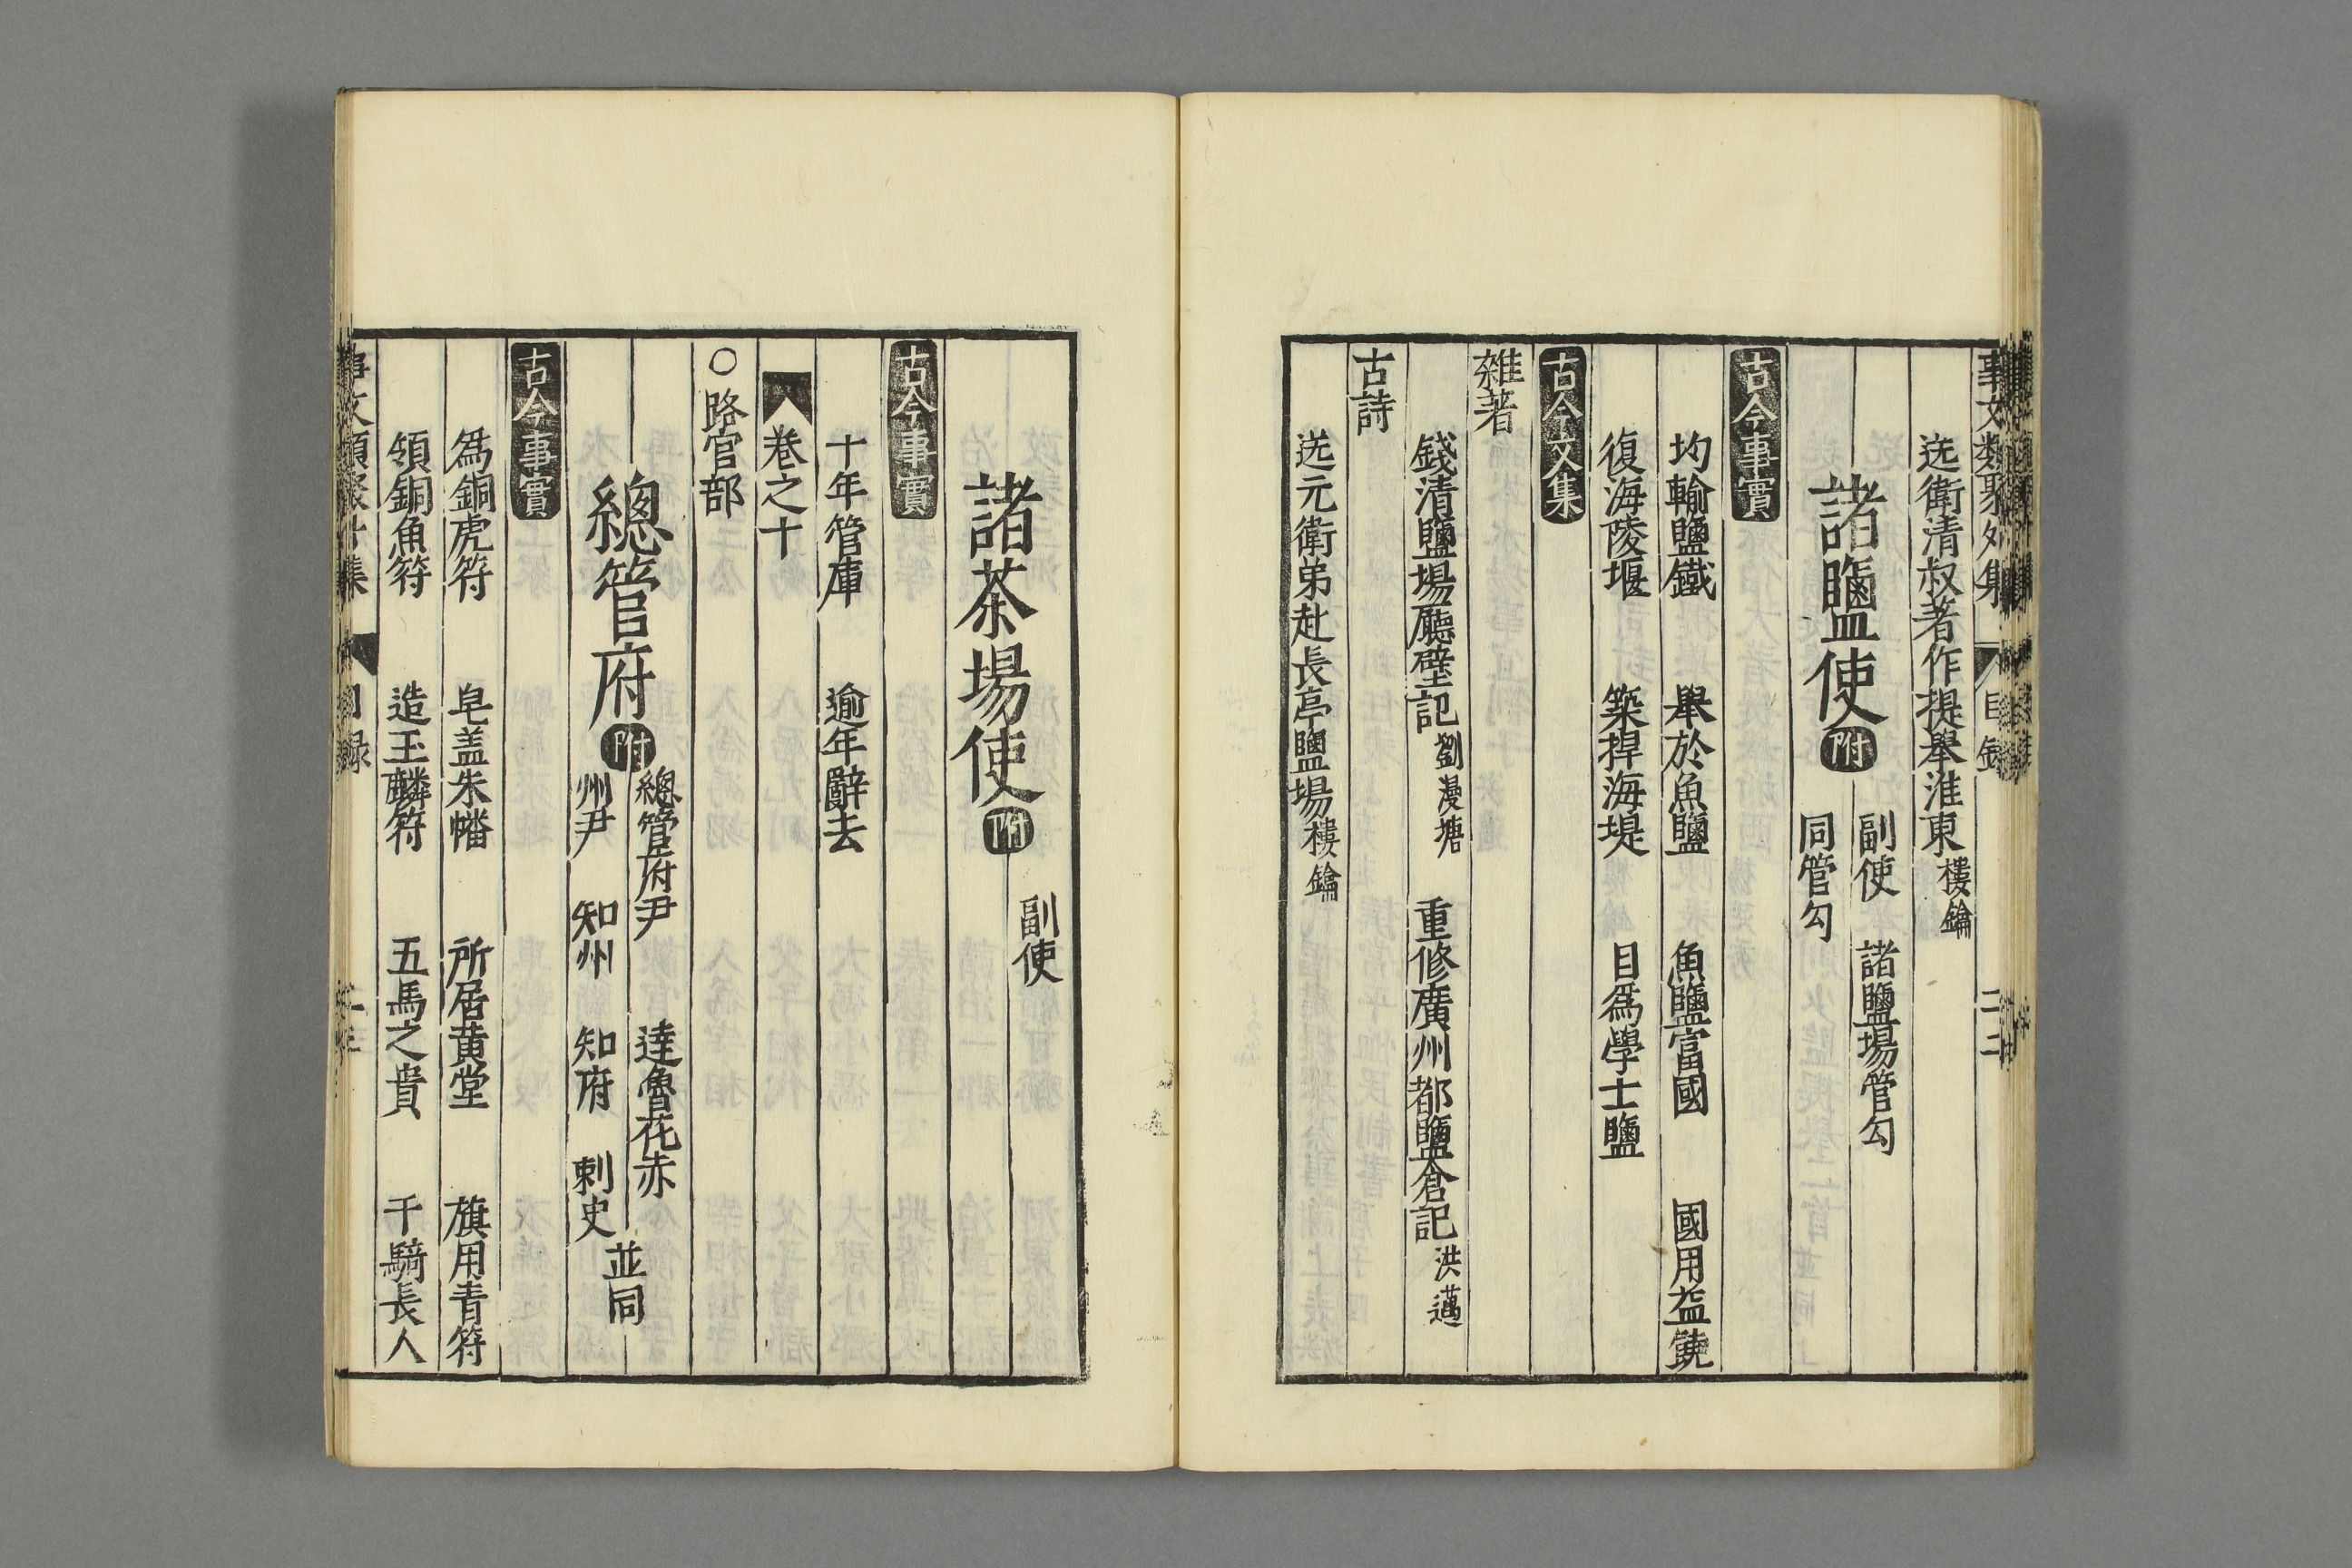 事文類聚外集 目録 二二
送衛清叔著作提舉淮東樓鑰
諸鹽使附 副使 諸鹽場管勾
同管勾
古今事實
均輸鹽鐵 舉於魚鹽 魚鹽富國 國用益饒
復海陵堰 築捍海堤 目爲學士鹽
古今文集
雜著
錢清鹽場廳壁記劉漫塘 重修廣州都鹽倉記洪邁
古詩
送元衛弟赴長亭鹽場樓鑰
諸茶場使附 副使
古今事實
十年管庫 逾年辭去
卷之十
○路官部
總管府附 總管府尹 達魯花赤
州尹 知州 知府 刺史 並同
古今事實
爲銅虎符 皂盖朱幡 所居黄堂 旗用青符
領銅魚符 造玉麟符 五馬之貴 千騎長人
事文類聚外集 目録